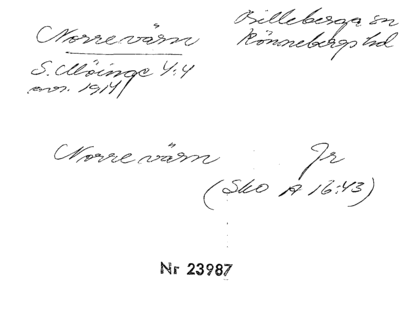 Norrevärn
Billeberga sn
Rönnebergs hd
S. Möinge 4:4
avs. 1914
Norrevärn Jr
(Sko A 16:43)
Nr 23987